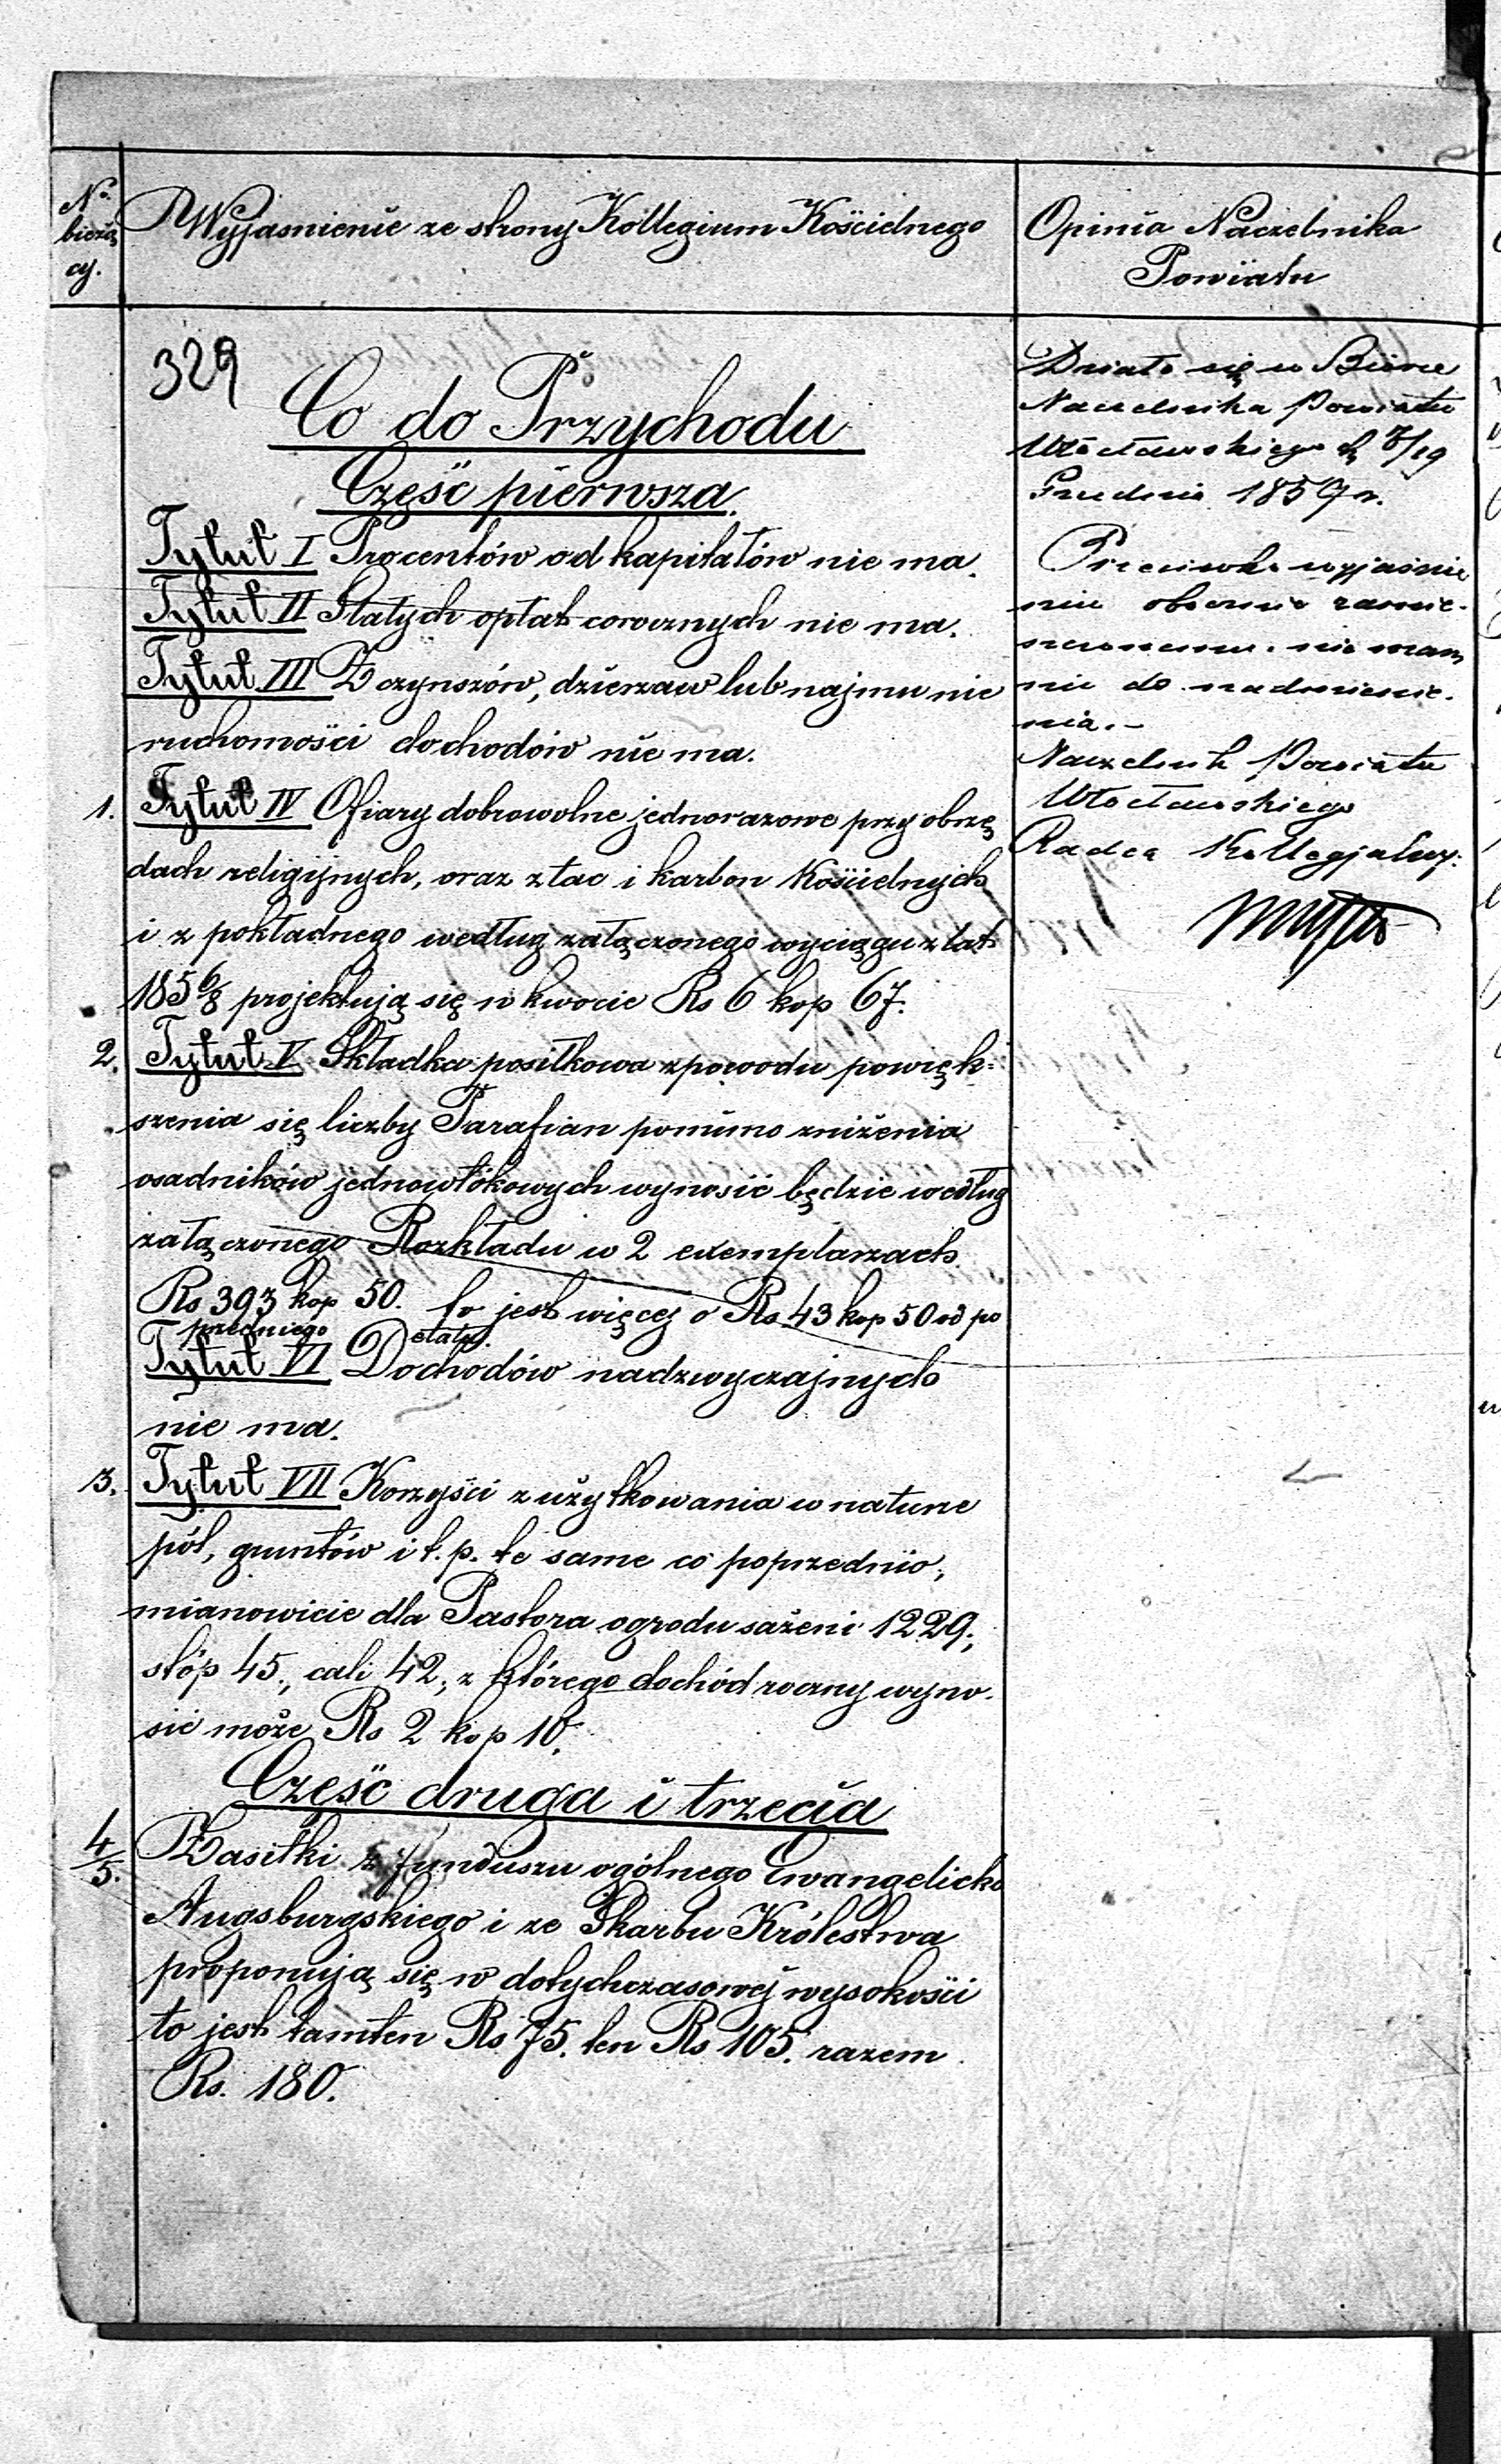 No.
bieżą
cy.
Wyjasnienie ze strony Kollegium Kościelnego
Opinia Naczelnika
Powiatu
329
Co do Przychodu
Część pierwsza.
Tytuł I Procentów od kapitałów nie ma.
Tytuł II Stałych opłat corocznych nie ma.
Tytuł III Z czynszów, dzierzaw lub najmu nie
ruchomości dochodów nie ma.
1. Tytuł IV Ofiary dobrowolne jednorazowe przy obrzę
dach religijnych, oraz z tac i karbon Kościelnych
i z pokładnego według załączonego wyciągu z lat
1856/8 projektują się w kwocie Rs 6 kop 67.
2. Tytuł V Składka posiłkowa z powodu powięk-
szenia się liczby Parafian pomimo zniżenia
osadników jednowłókowych wynosić będzie według
załączonego Rozkładu w 2 exemplarzach
Rs 393 kop 50. to jest więcej o Rs 43 kop 50 od po
przedniego etatu.
Tytuł VI Dochodów nadzwyczajnych
nie ma.
3. Tytuł VII Korzyści z użytkowania w naturze
pól, gruntów i t. p. te same co poprzednio,
mianowicie dla Pastora ogrodu sażeni 1229,
stóp 45, cali 42, z którego dochód roczny wyno-
sić może Rs 2 kop 10.
Część druga i trzecia
4/5. Zasiłki z funduszu ogólnego Ewangelicko
Augsburgskiego i ze Skarbu Królestwa
proponują się w dotychczasowej wysokości
to jest tamten Rs 75. ten Rs 105. razem
Rs. 180.
Działo się w Biórze
Naczelnika Powiatu
Włocławskiego d. 7/19
Grudnia 1859 r.
Przeciwko wyjaśnie
niu obecnie zamie-
nie mam
nic do nadmienie-
nia.-
Naczelnik Powiatu
Włocławskiego
Radca Kollegjalny